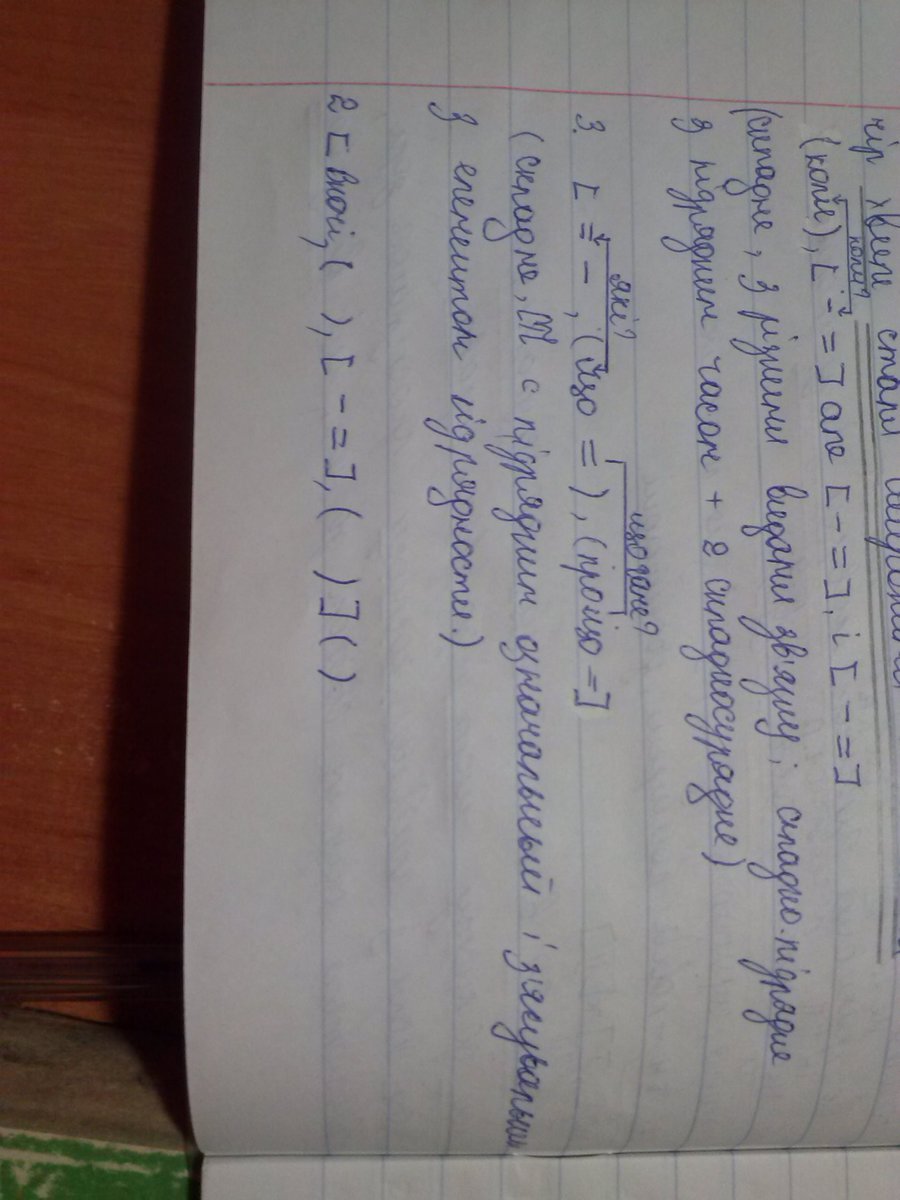 хвиля стала
коли?
(коли), [ - = ] але [ - = ], і [ - = ]
(складне, з різними видами зв'язку; складно-підрядне
з підрядним часом + 2 складносурядне)
які? що саме?
3. [ = - , (що = ), (про що = ]
(складне, СП с підрядним означальный і з'ясувальным
з елементом підрядности.)
2 [ Вночі, ( ), [ - = ], ( ) ] ( )